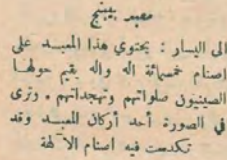 معبد بيبنج
الى اليسار : يحتوي هذا المعبـد على
اصنام خمسمائة اله واله يقيم حولهـا
الصينيون صلواتهم وتهجداتهم . وترى
في الصورة أحد أركان المعبـد وقد
تكدست فيه اصنام الآلهة